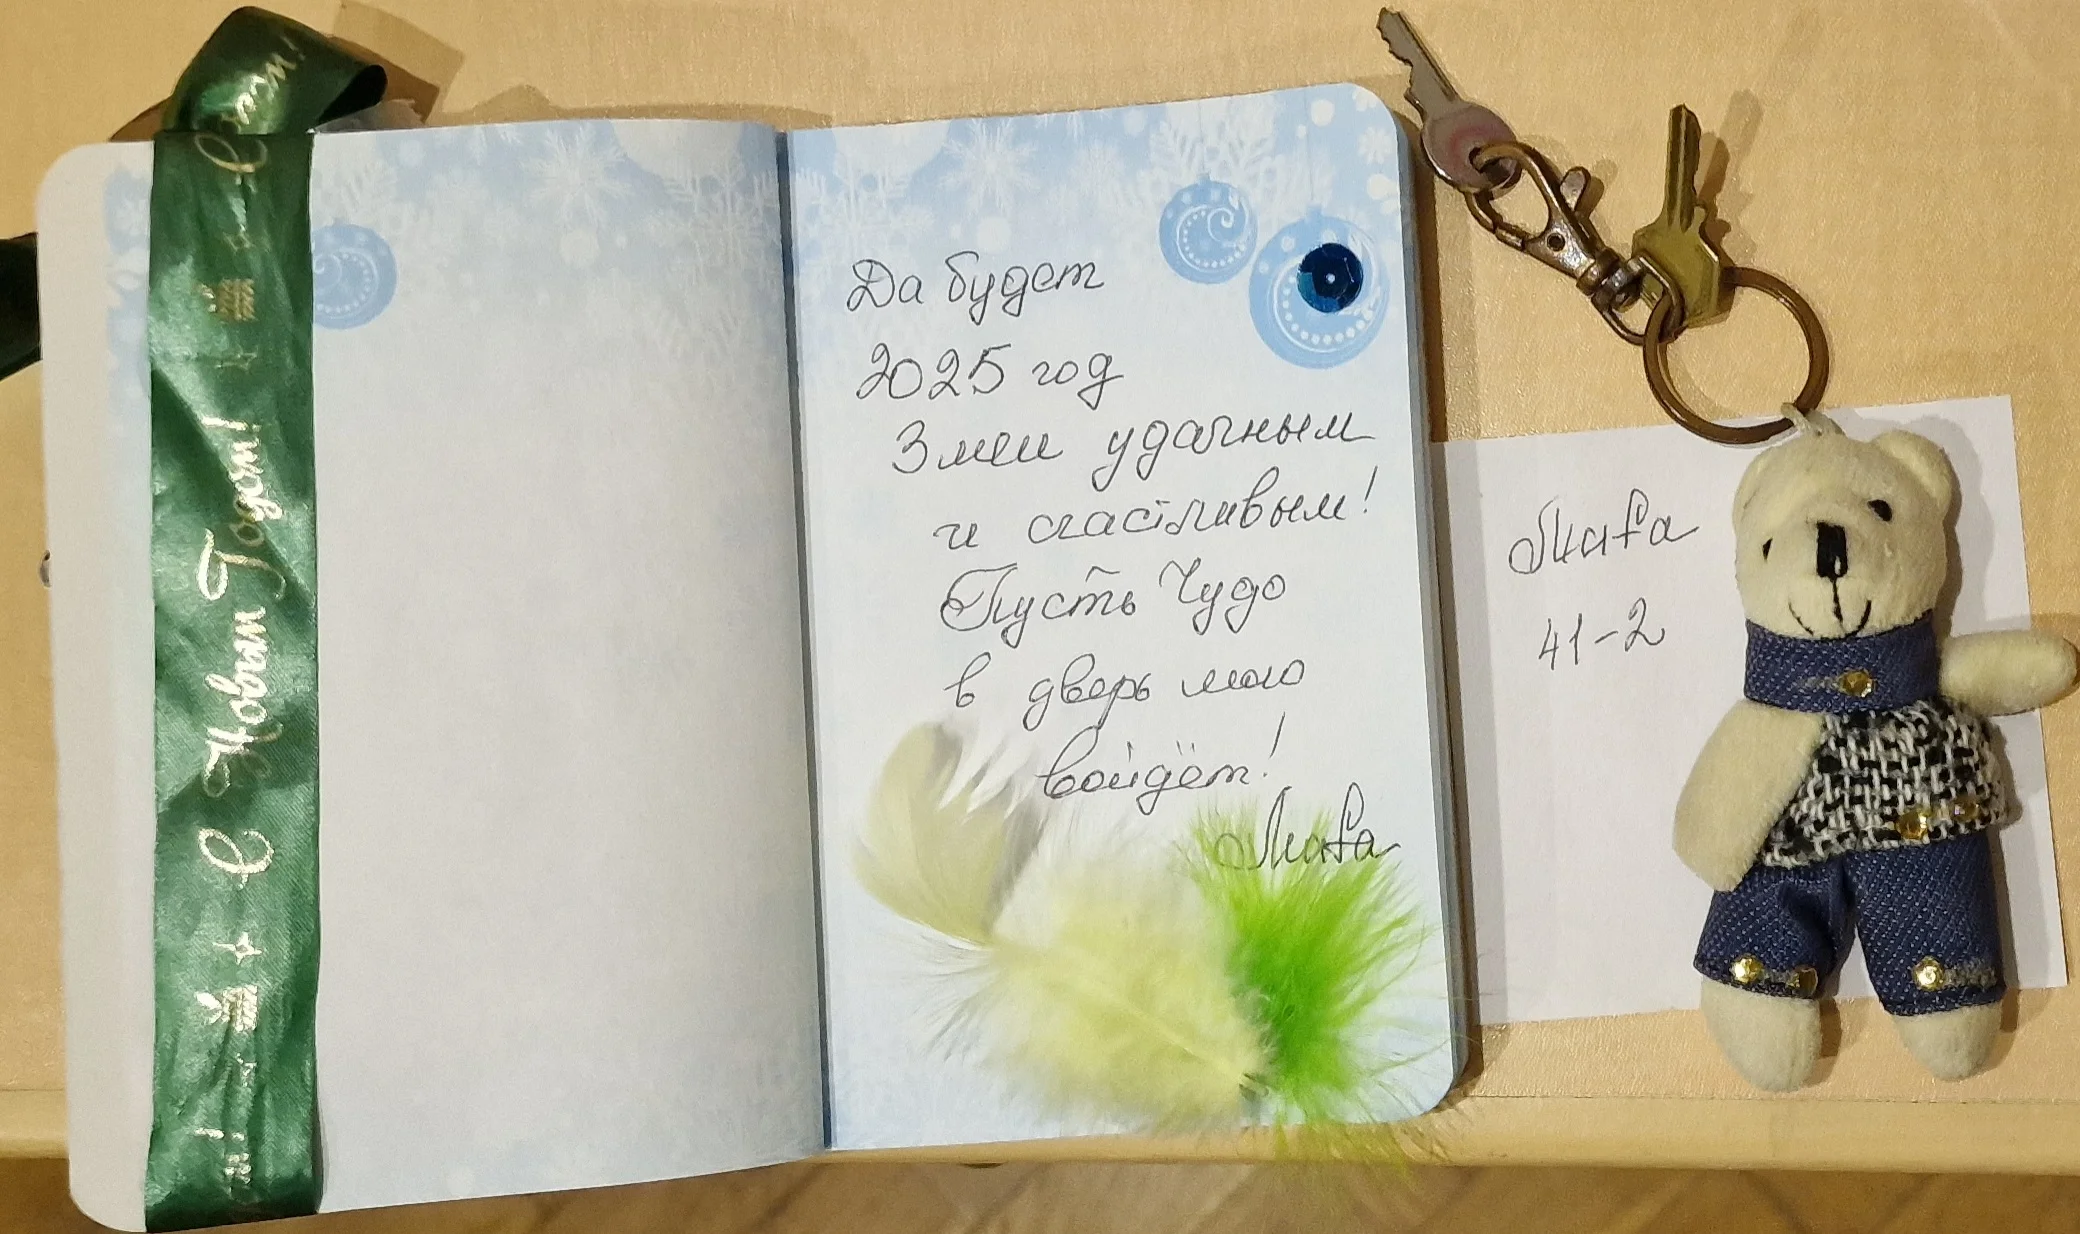 С Новым Годом!
С
ом!
Да будет
2025 год
Змеи удачным
и счастливым!
Пусть Чудо
в дверь мою
войдёт!
Ната
Ната
41-2